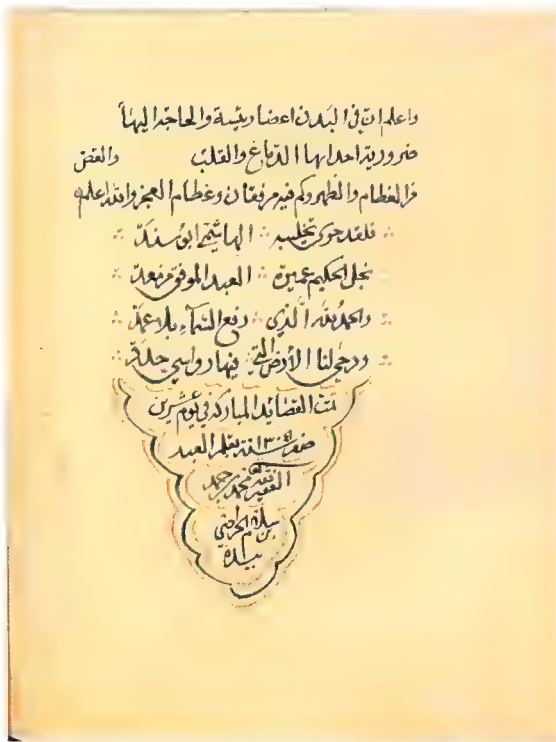 واعلم ان في البدن اعضا رئيسة والحاجة اليها
ضرورية احداها الدماغ والقلب والعض
من العظام والظهر وكم فيه من فقان وعظام العجز والله اعلم
فلقد حوى تخليسه الهاشمي ابو سندك
نجل الحكيم عميرة العبد الموفق من بعد
والحمد لله الذي رفع السماء بلا عمد
ودحى لنا الأرض التي فيها رواسي
تمت القصائد المباركة في يوم
صفر سنة ١٣٠٤ بقلم العبد
الفقير لله محمد بن حمد
بن سلام
بيده